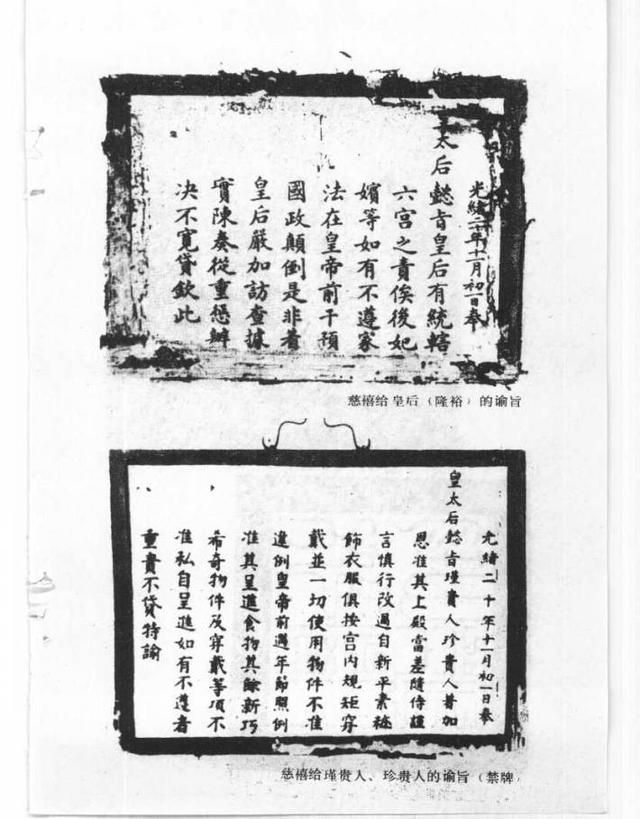 光緒二十年十一月初一日奉
皇太后懿旨皇后有統轄
六宮之責俟後妃
嬪等如有不遵家
法在皇帝前干預
國政顛倒是非着
皇后嚴加訪查據
實陳奏從重懲辦
决不寬貸欽此
慈禧给皇后（隆裕）的谕旨
光緒二十年十一月初一日奉
皇太后懿旨瑾貴人珍貴人著加
恩准其上殿當差隨侍謹
言慎行改過自新平素裝
飾衣服俱按宮内規矩穿
戴並一切使用物件不准
違例皇帝前遇年節照例
准其呈進食物其餘新巧
希奇物件及穿戴等項不
准私自呈進如有不遵者
重責不貸特諭
慈禧给瑾贵人、珍贵人的谕旨（禁牌